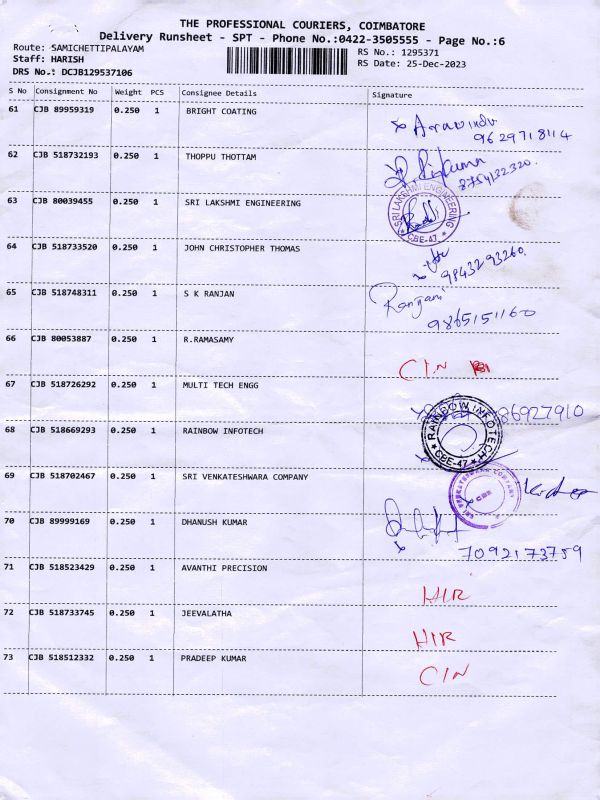 THE PROFESSIONAL COURIERS, COIMBATORE
Delivery Runsheet - SPT - Phone No.:0422-3505555 - Page No.:6
Route: SAMICHETTIPALAYAM
Staff: HARISH
DRS No.: DCJB129537106
RS No.: 1295371
RS Date: 25-Dec-2023
S No Consignment No Weight PCS Consignee Details Signature
61 CJB 89959319 0.250 1 BRIGHT COATING
Aravindv
9629718114
62 CJB 518732193 0.250 1 THOPPU THOTTAM
8754132320.
63 CJB 80039455 0.250 1 SRI LAKSHMI ENGINEERING
SRI LAKSHMI ENGINEERING
CBE-47
64 CJB 518733520 0.250 1 JOHN CHRISTOPHER THOMAS
9843293260.
65 CJB 518748311 0.250 1 S K RANJAN
Ranjani
9865151160
66 CJB 80053887 0.250 1 R.RAMASAMY
CIN
67 CJB 518726292 0.250 1 MULTI TECH ENGG
86927910
68 CJB 518669293 0.250 1 RAINBOW INFOTECH
RAINBOW INFOTECH
CBE-47
69 CJB 518702467 0.250 1 SRI VENKATESHWARA COMPANY
SRI VENKATESHWARA COMPANY
CBE
70 CJB 89999169 0.250 1 DHANUSH KUMAR
7092173759
71 CJB 518523429 0.250 1 AVANTHI PRECISION
HIR
72 CJB 518733745 0.250 1 JEEVALATHA
HIR
73 CJB 518512332 0.250 1 PRADEEP KUMAR
CIN